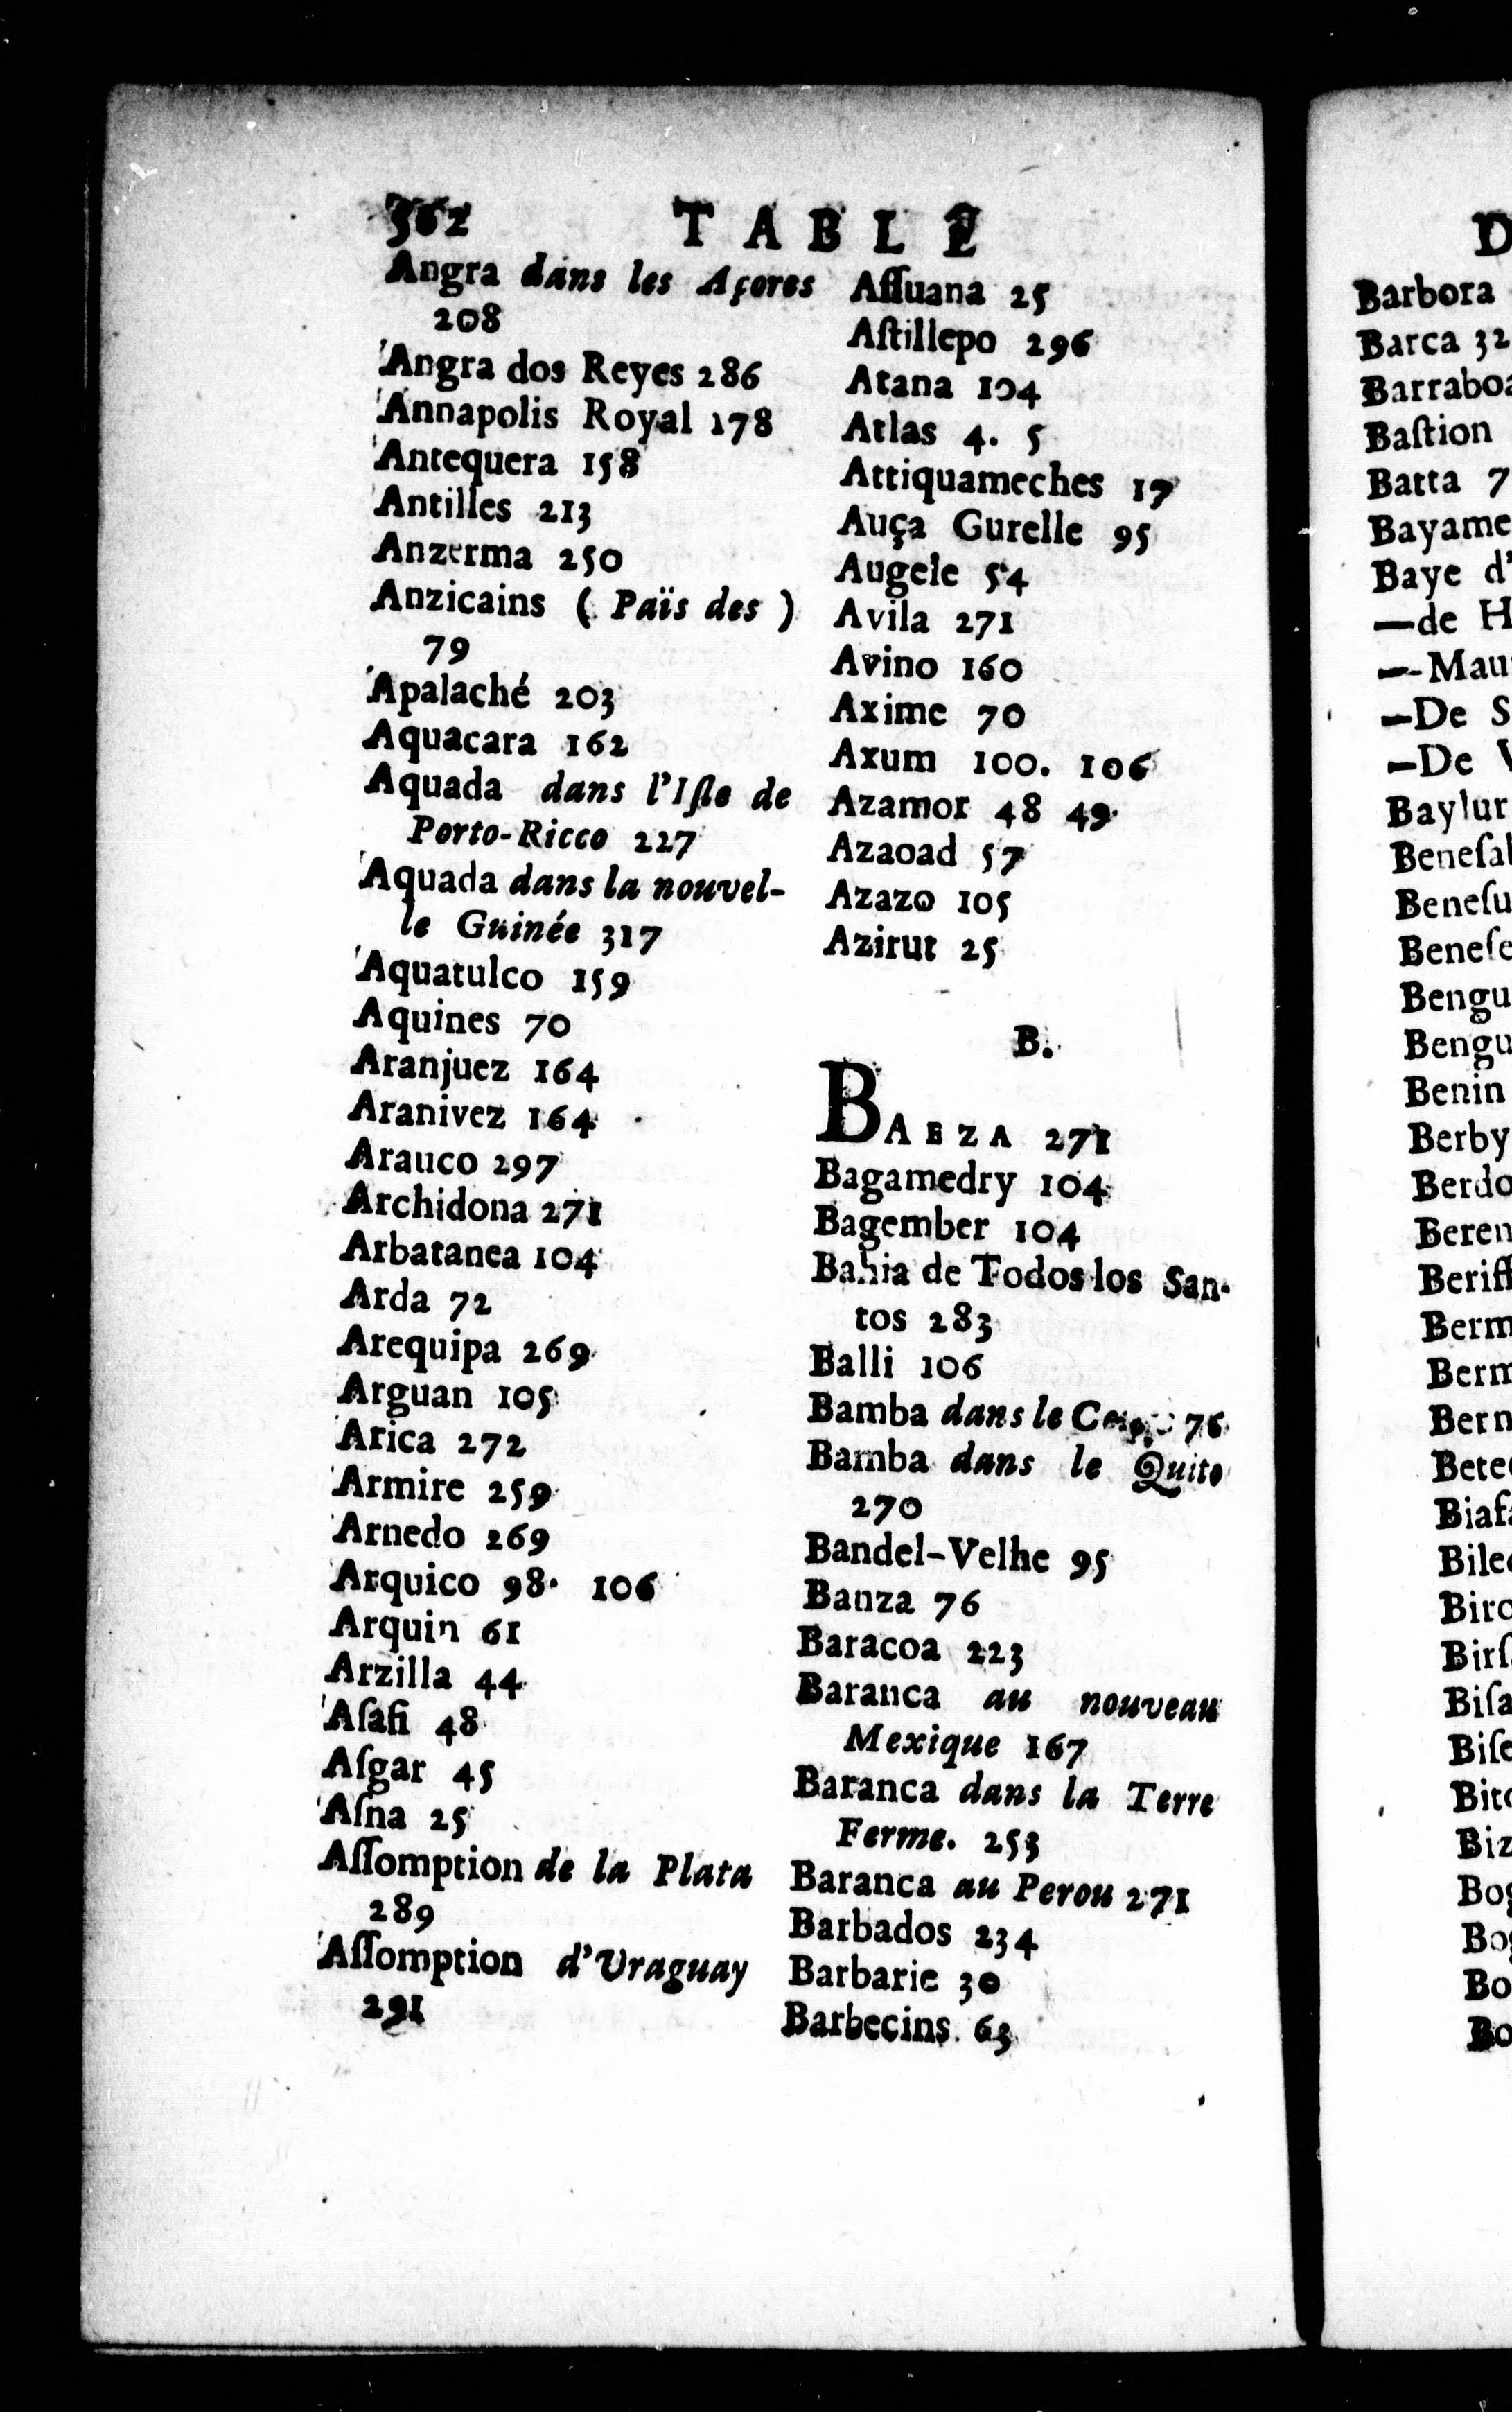 362 TABLE
Angra dans les Açores
208
Angra dos Reyes 286
Annapolis Royal 178
Antequera 158
Antilles 213
Anzerma 250
Anzicains ( Païs des )
79
Apalaché 203
Aquacara 162
Aquada dans l'Iſle de
Porto-Ricco 227
Aquada dans la nouvel-
le Guinée 317
Aquatulco 159
Aquines 70
Aranjuez 164
Aranivez 164
Arauco 297
Archidona 271
Arbatanea 104
Arda 72
Arequipa 269
Arguan 105
Arica 272
Armire 259
Arnedo 269
Arquico 98. 106
Arquin 61
Arzilla 44
Aſafi 48
Aſgar 45
Aſna 25
Aſſomption de la Plata
289
Aſſomption d'Uraguay
291
Aſſuana 25
Aſtillepo 296
Atana 104
Atlas 4. 5
Attiquameches 17
Auça Gurelle 95
Augele 54
Avila 271
Avino 160
Axime 70
Axum 100. 106
Azamor 48 49
Azaoad 57
Azazo 105
Azirut 25
B.
BAEZA 271
Bagamedry 104
Bagember 104
Bahia de Todos los San-
tos 283
Balli 106
Bamba dans le 76
Bamba dans le Quito
270
Bandel-Velhe 95
Banza 76
Baracoa 223
Baranca au nouveau
Mexique 167
Baranca dans la Terre
Ferme. 253
Baranca au Perou 271
Barbados 234
Barbarie 30
Barbecins 63
D
Barbora
Barca 32
Barraboa
Baſtion
Batta 7
Bayame
Baye d'
—de H
—Mau
—De S
—De V
Baylur
Beneſal
Beneſu
Beneſe
Bengu
Bengu
Benin
Berby
Berdo
Beren
Beriſſ
Berm
Berm
Bern
Bete
Biaf
Bile
Biro
Birſ
Biſa
Biſe
Bito
Biz
Bog
Bog
Bo
Bo